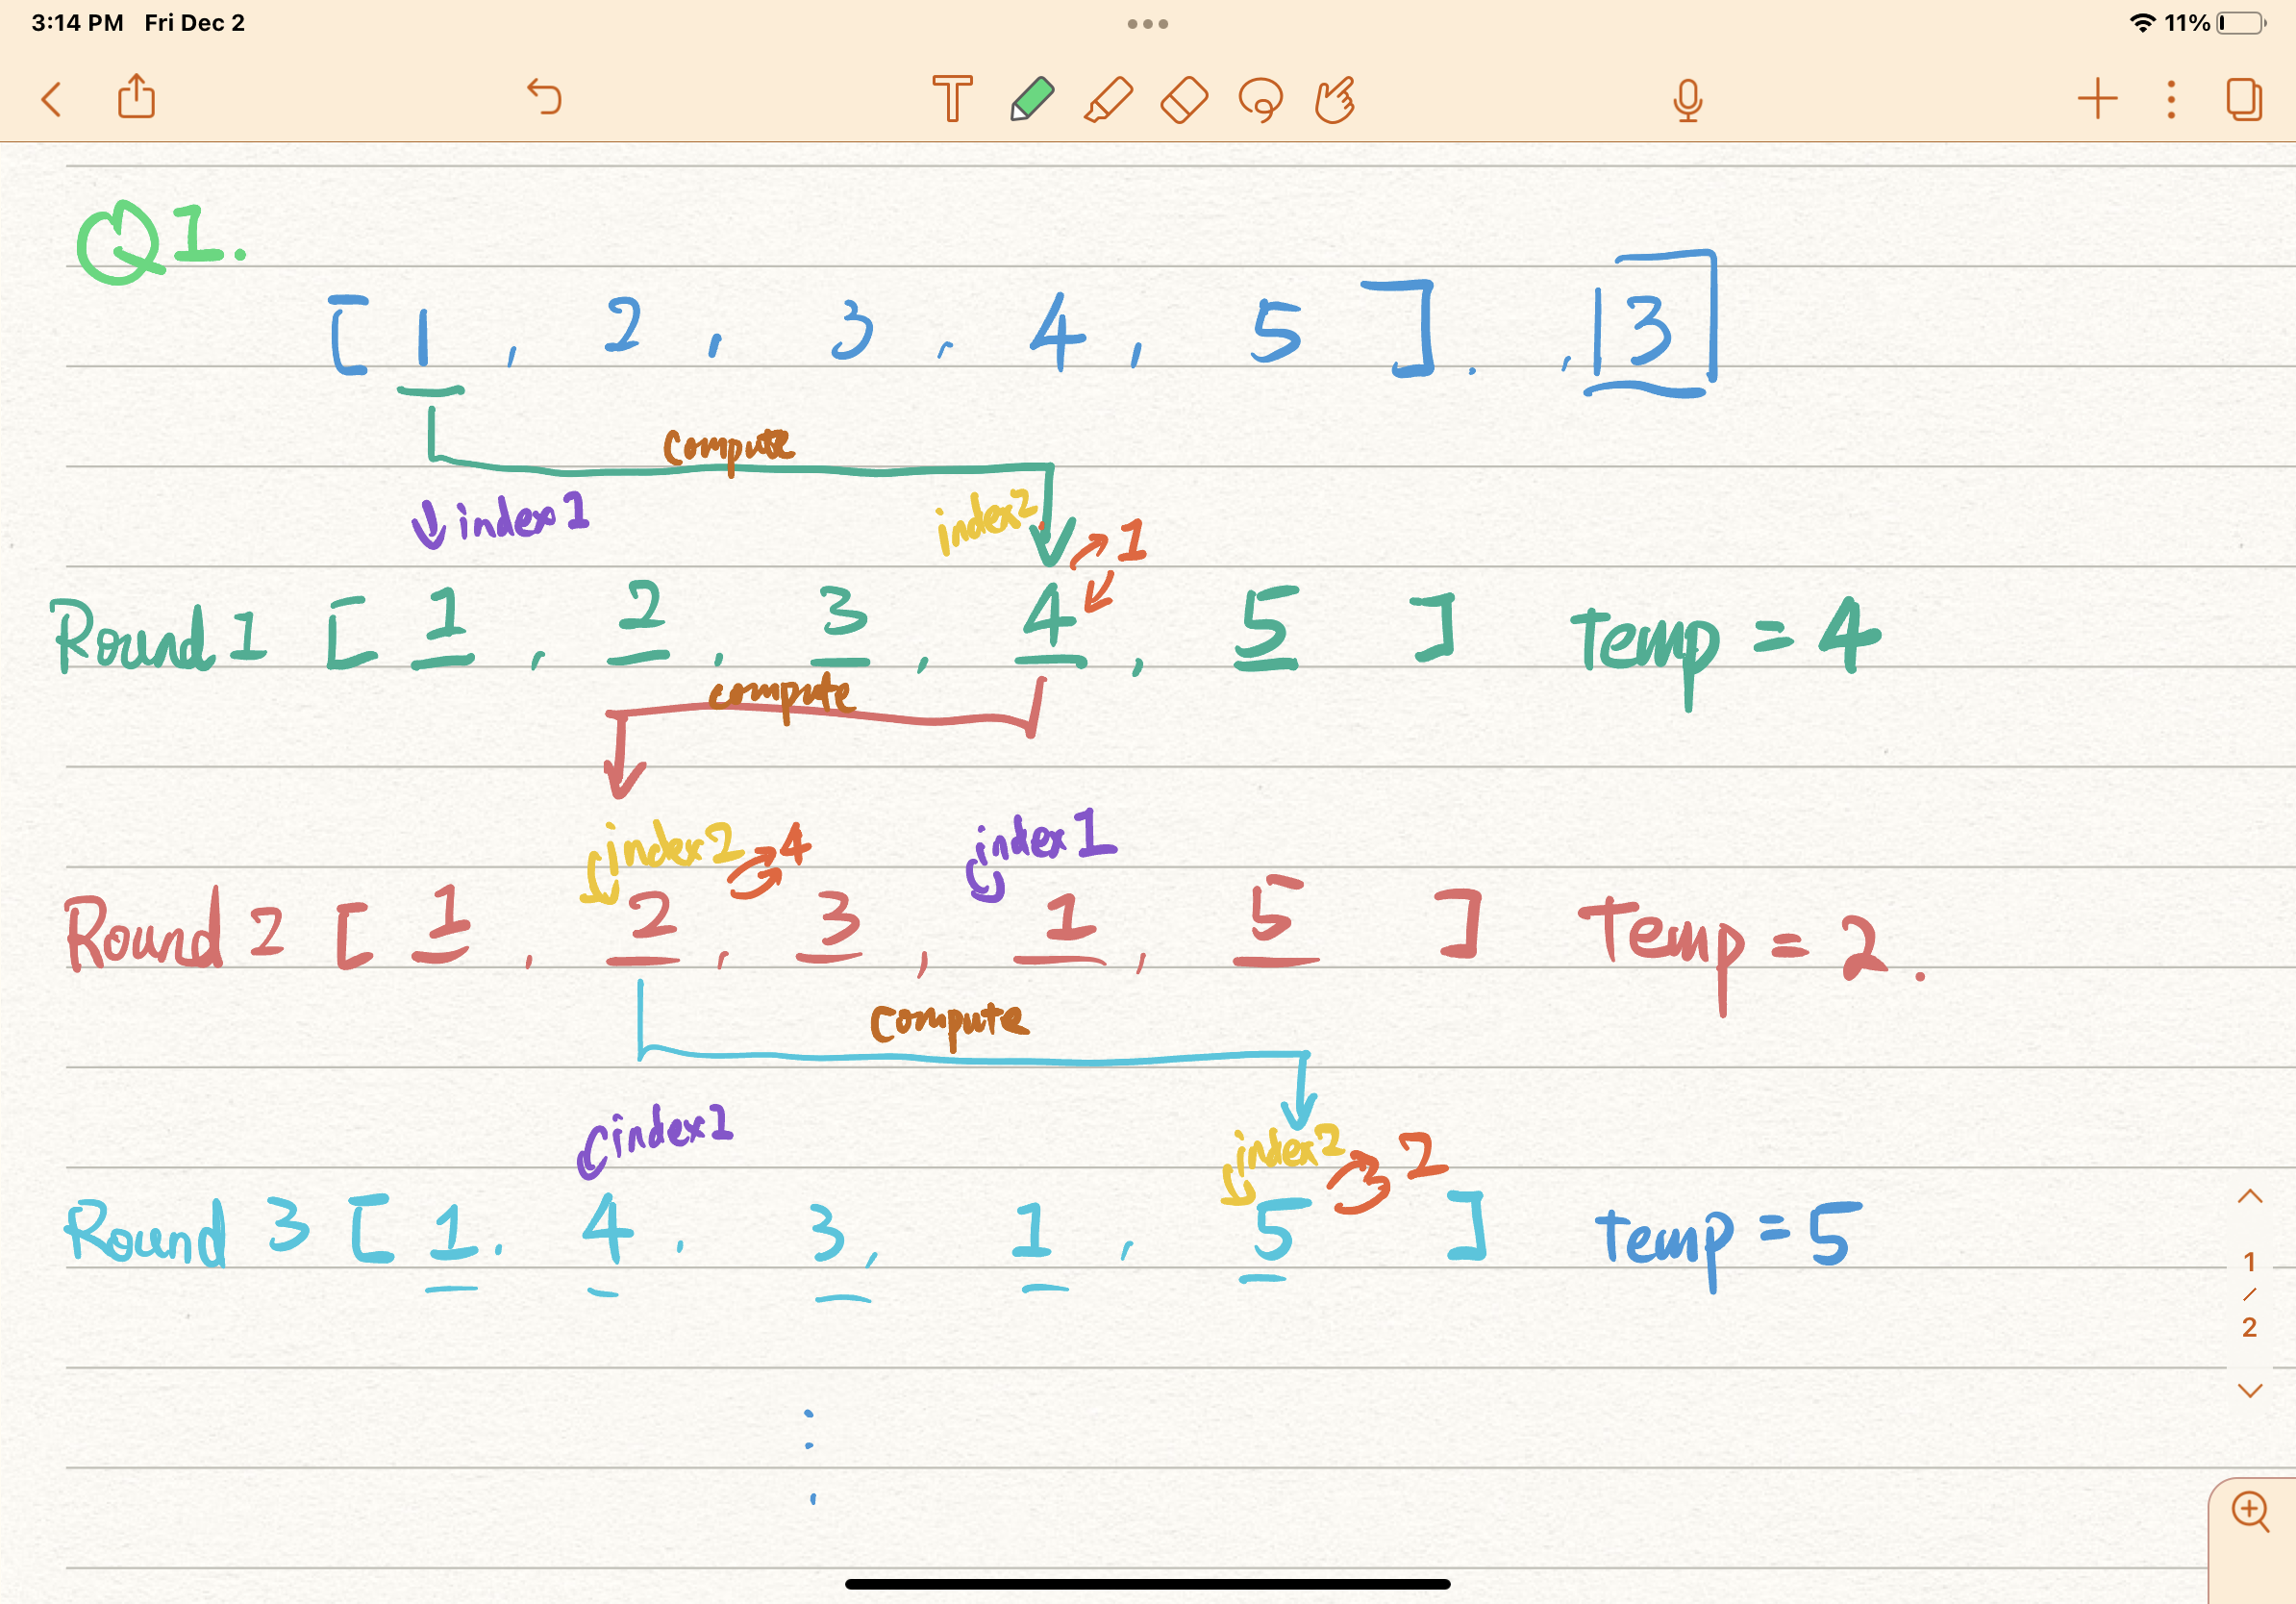 3:14 PM Fri Dec 2 11%
Q1.
[ 1 , 2 , 3 , 4 , 5 ] . , 3
compute
index1 index2 1
Round 1 [ 1 , 2 , 3 , 4 , 5 ] Temp = 4
compute
index2 4 index1
Round 2 [ 1 , 2 , 3 , 1 , 5 ] Temp = 2.
compute
index1 index2 2
Round 3 [ 1 , 4 , 3 , 1 , 5 ] temp = 5
1
/
2